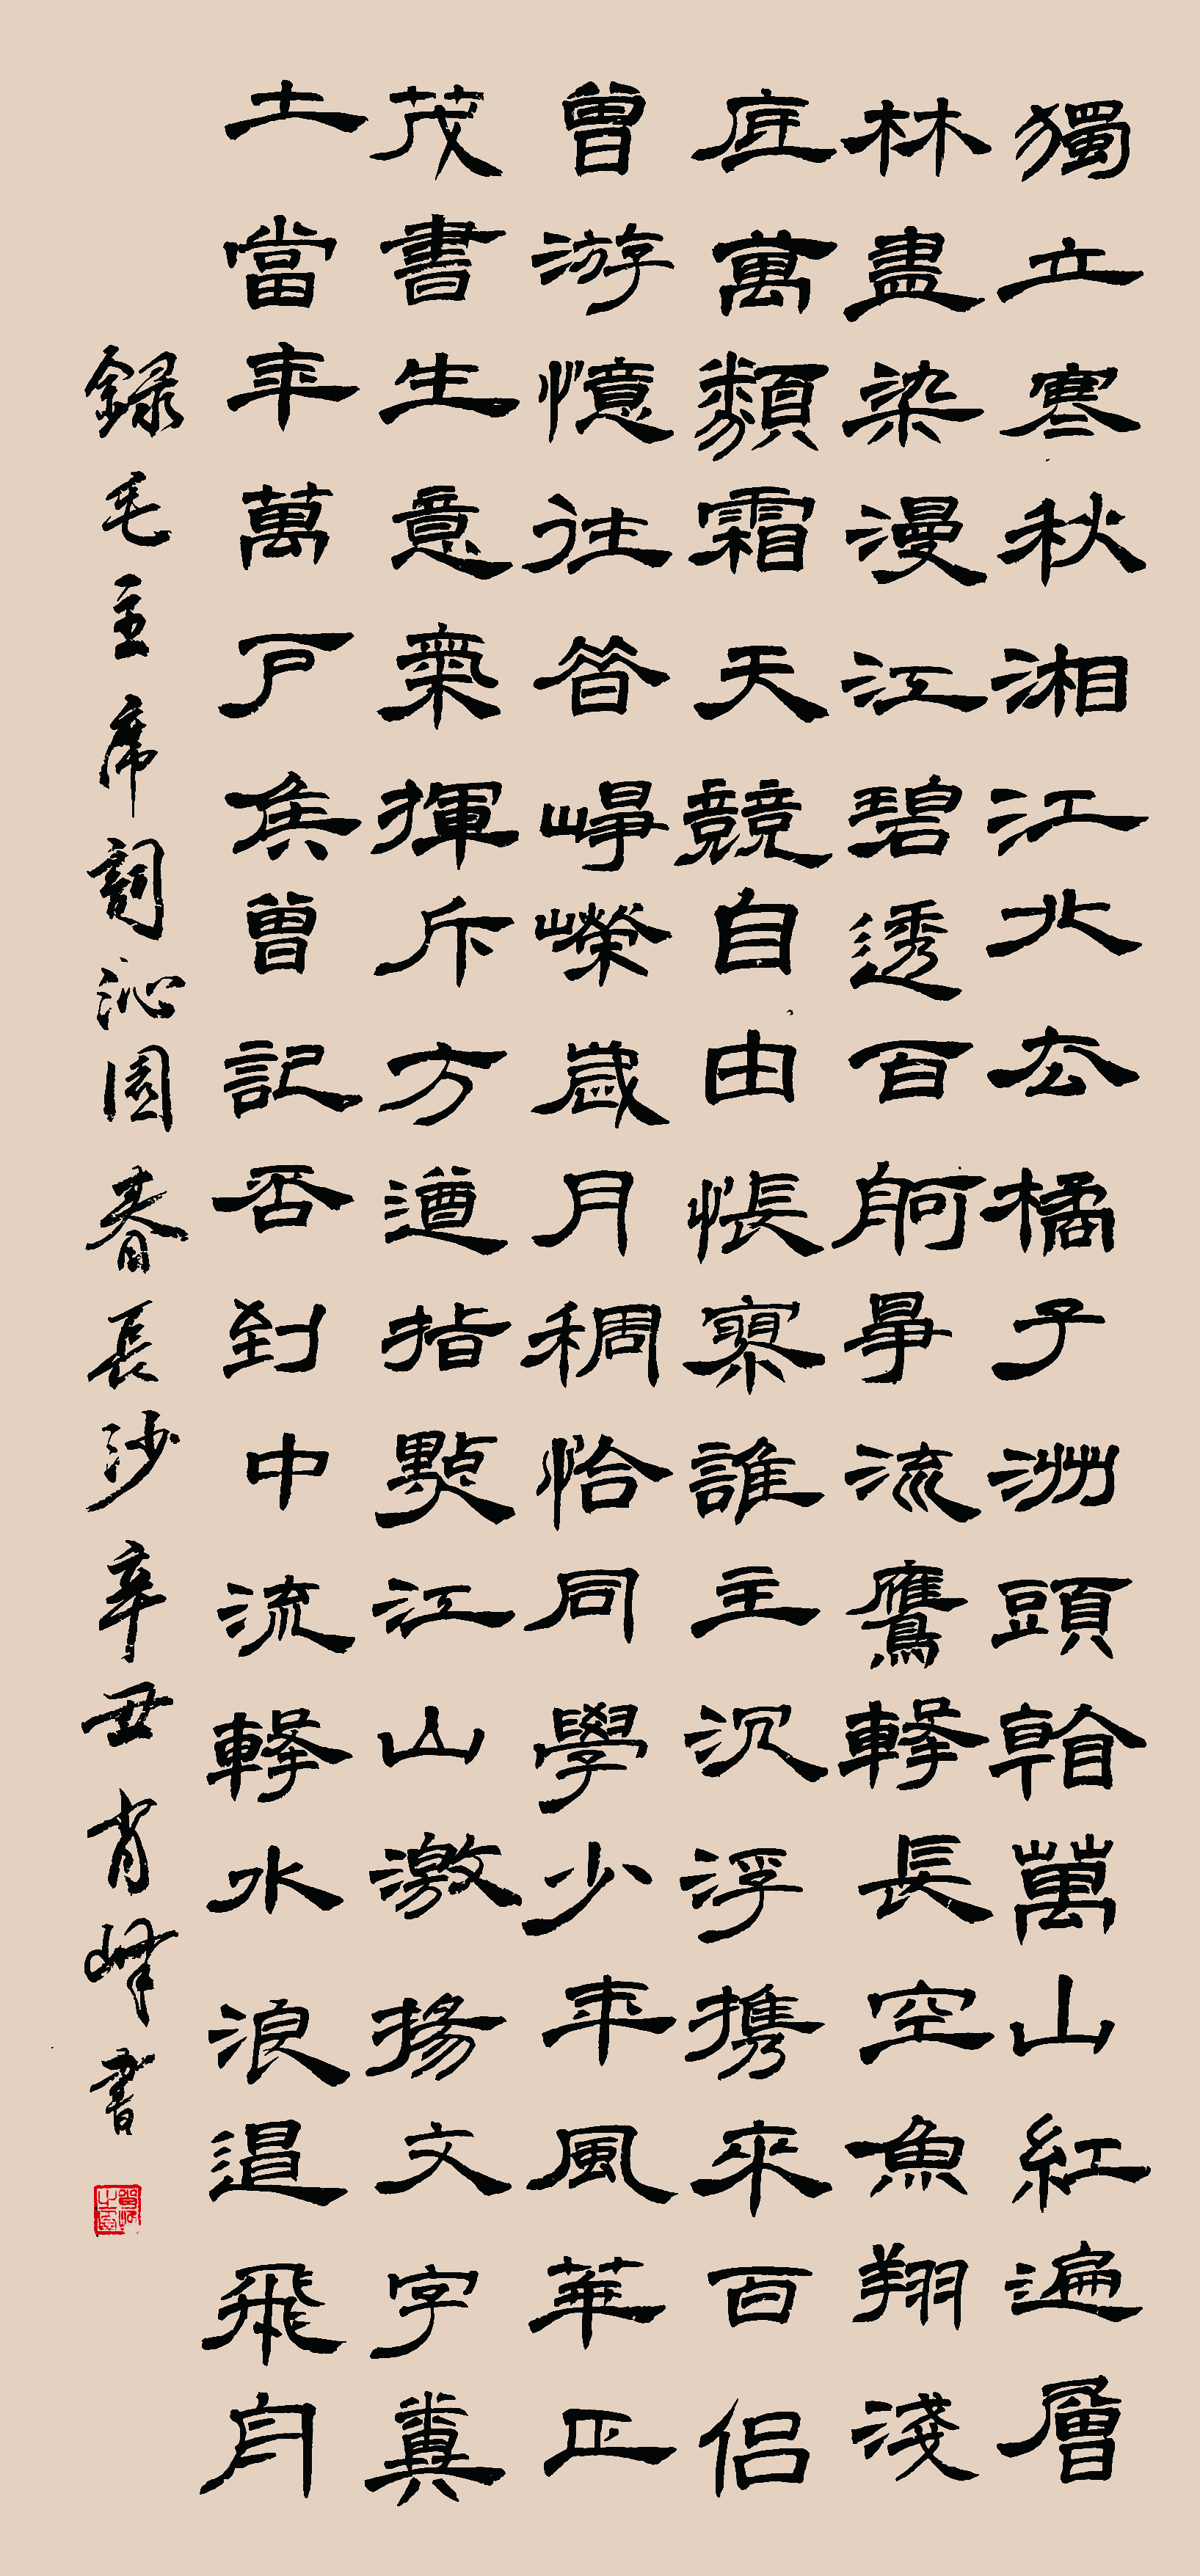 獨立寒秋湘江北去橘子洲頭看萬山紅遍層
林盡染漫江碧透百舸爭流鷹擊長空魚翔淺
底萬類霜天競自由悵寥誰主沉浮携來百侶
曾游憶往昔崢嶸歲月稠恰同學少年風華正
茂書生意氣揮斥方遒指點江山激揚文字糞
土當年萬戶侯曾記否到中流擊水浪遏飛舟
錄毛主席詞沁園春長沙辛丑肖峰書